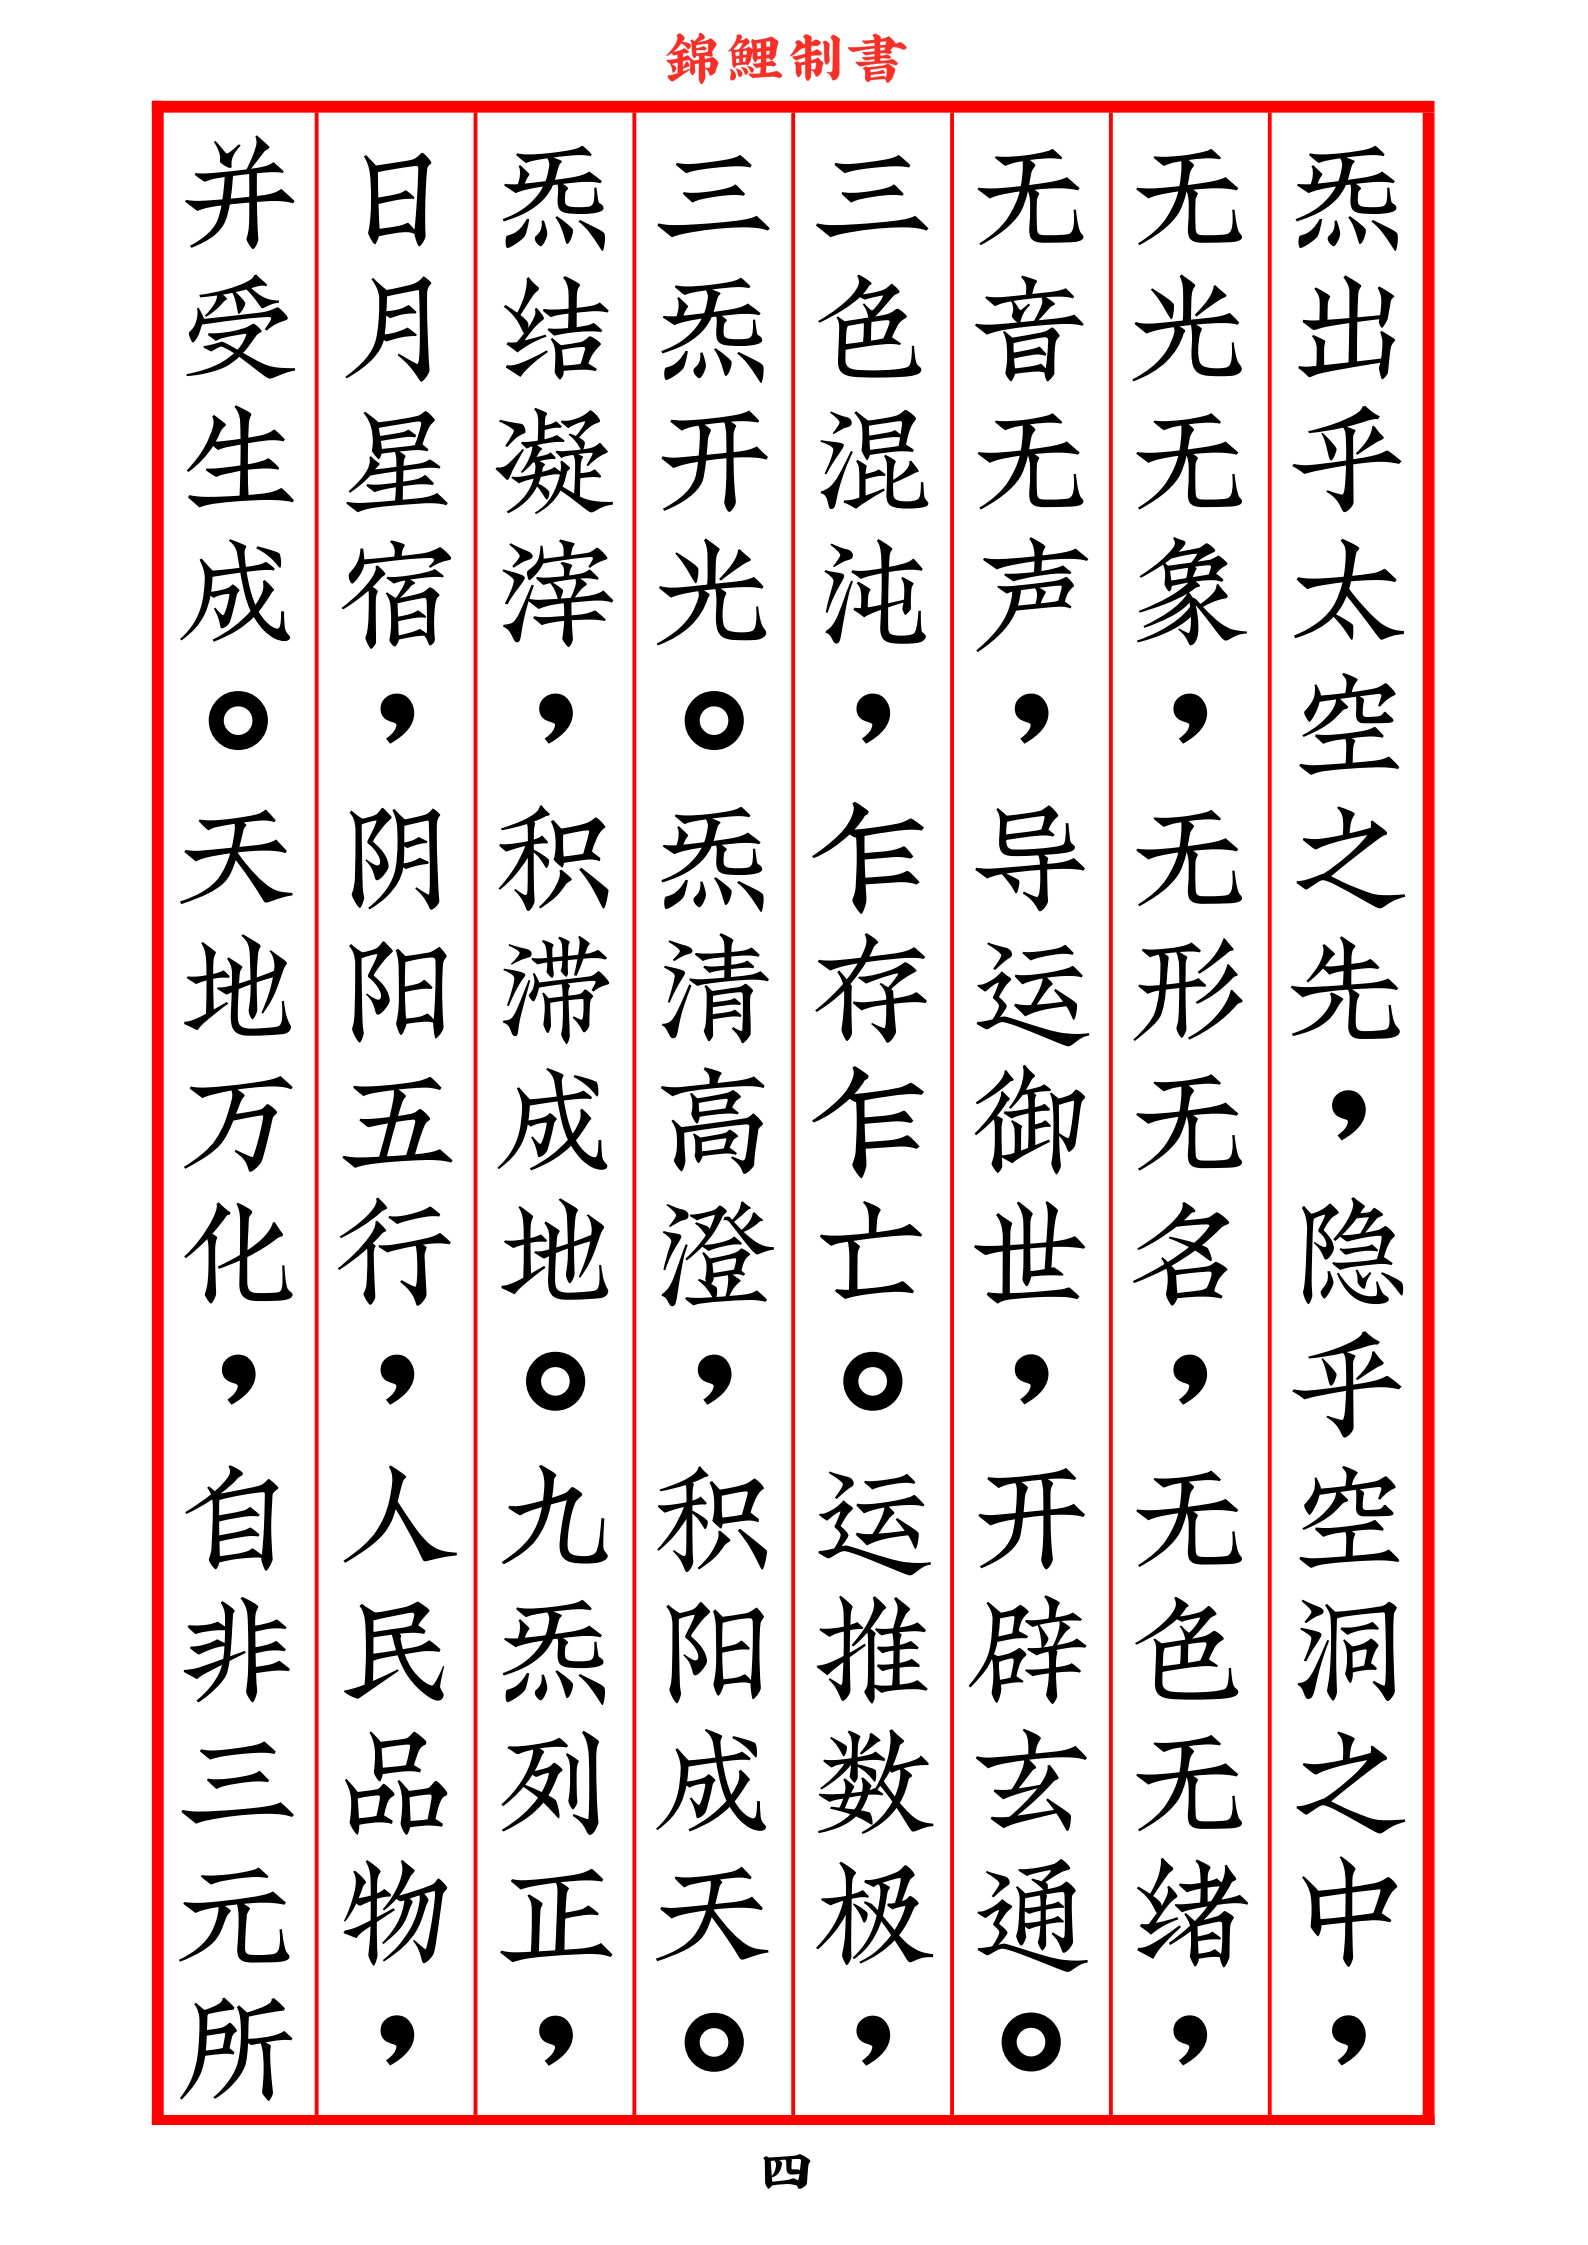 錦鯉制書
炁出乎太空之先，隐乎空洞之中，
无光无象，无形无名，无色无绪，
无音无声，导运御世，开辟玄通。
三色混沌，乍存乍亡。运推数极，
三炁开光。炁清高澄，积阳成天。
炁结凝滓，积滞成地。九炁列正，
日月星宿，阴阳五行，人民品物，
并受生成。天地万化，自非三元所
四